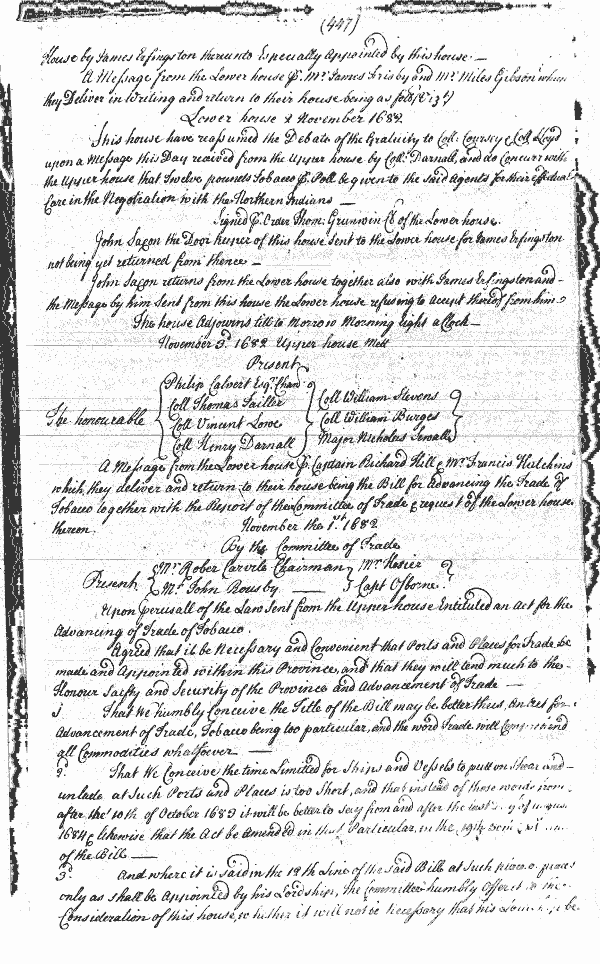 (447)
House by James Erfingston thereunto Especially Appointed by this house. —
A Message from the Lower house p. Mr. James Frisby and Mr. Miles Gibson whom
they Deliver in Writing and return to their house being as
Lower house 2 November 1682.
This house have reassumed the Debate of the Gratuity to Coll: Coursey & Coll. Lloyd
upon a Message this Day received from the Upper house by Coll: Darnall, and do Concurr with
the Upper house that Twelve pounds Tobacco p. Poll be given to the said Agents for their effectual
Care in the Negotiation with the Northern Indians —
Signed p. Order Thom: Grunwin Cl. of the Lower house.
John Saxon the Door keeper of this house sent to the Lower house for James Erfingston
not being yet returned from thence —
John Saxon returns from the Lower house together also with James Erfingston and
the Message by him sent from this house the Lower house refusing to accept thereof from him.
The house Adjourns till to Morrow Morning Eight a Clock —
November 3d. 1682 Upper house Mett
Present
The honourable
Philip Calvert Esqr. Chan
Coll Thomas Tailler
Coll Vincent Lowe
Coll Henry Darnall
Coll William Stevens
Coll William Burges
Major Nicholas Sewalls
A Message from the Lower house p. Captain Richard Hill & Mr. Francis Hutchins
which, they deliver and return to their house being the Bill for Advancing the Trade of
Tobacco together with the Report of the Committee of Trade & request of the Lower house
thereon. November the 1st. 1682
By the Committee of Trade
Present
Mr. Rober Carvile Chairman
Mr. John Rousby —
Mr. Hosier
Capt Osborne
Upon perusall of the Law Sent from the Upper house Entituled an Act for the
Advancing of Trade of Tobacco.
Agreed that it be Necessary and Convenient that Ports and Places for Trade be
made and Appointed within this Province, and that they will tend much to the
Honour Saifty and Security of the Province and Advancement of Trade —
1 That We humbly Conceive the Title of the Bill may be better thus, An Act for
Advancement of Trade, Tobacco being too particular, and the word Trade will Comprehend
all Commodities whatsoever —
2d. That We Conceive the time Limitted for Ships and Vessels to put on Shoar and
unlade at Such Ports and Places is too Short, and that instead of those words from
after the 10th of October 1683 it will be better to say from and after the last
1684 & likewise that the Act be Amended in that Particular, in the
of the Bill —
3d. And where it is said in the 18th Line of the said Bill at Such
only as shall be Appointed by his Lordship, the Committee humbly Offer it to the
Consideration of this house, whether it will not be Necessary that his be